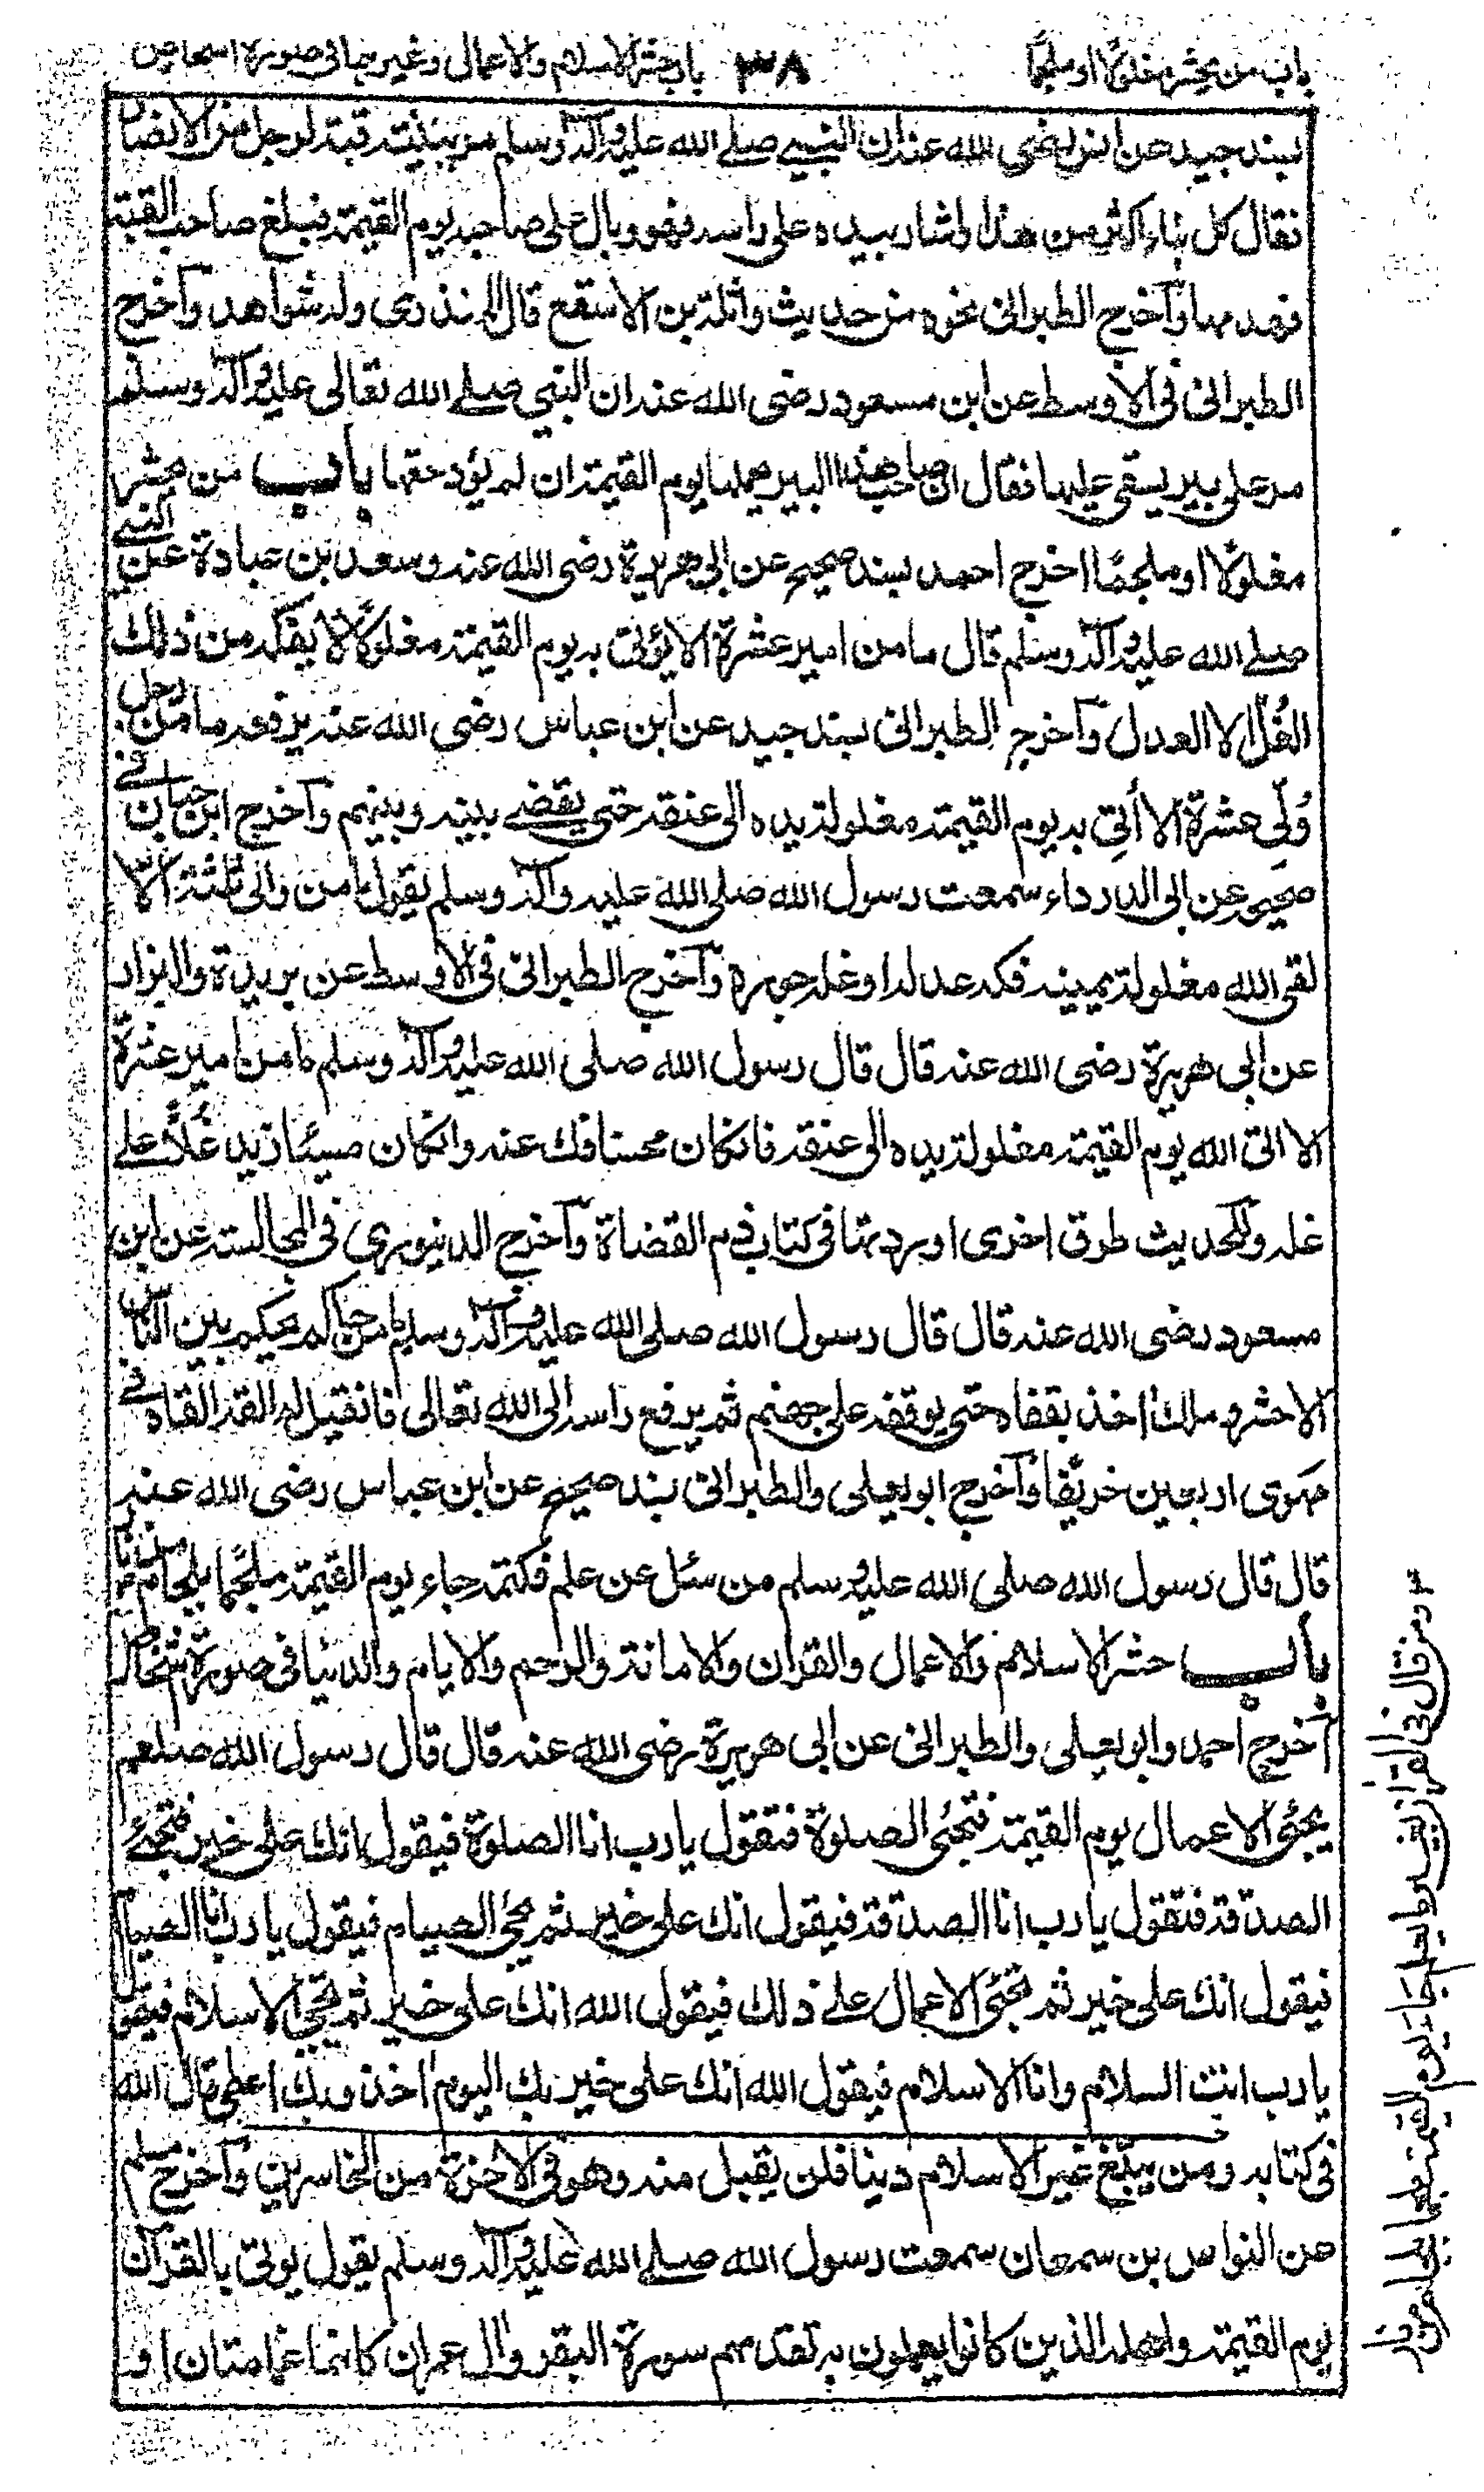 باب من يحشر مغلولا او ملجمًا ٣٨ باب حشر الاسلام والاعمال وغيرهما فى صورة اشخاص
بسند جيد عن انس رضى الله عنه ان النبى صلى الله عليه وآله وسلم مر ببنية قبة لرجل من الانصار
فقال كل بناء اكثر من هذا واشار بيده على راسه فهو وبال على صاحبه يوم القيمة فبلغ صاحب القبة
فهدمها وآخرج الطبرانى نحوه من حديث واثلة بن الاسقع قال المنذرى وله شواهد وآخرج
الطبرانى فى الاوسط عن ابن مسعود رضى الله عنه ان النبي صلے الله تعالى عليه وآله وسلم
مر على بير يسقى عليها فقال ان صاحب هذا البير يحملها يوم القيمة ان لم يؤد حقها باب من حشر
مغلولًا او ملجمًا اخرج احمد بسند صحيح عن ابى هريرة رضى الله عنه وسعد بن عبادة عن النبے
صلے الله عليه وآله وسلم قال ما من امير عشرة الا يؤتى به يوم القيمة مغلولًا لا يفكه من ذلك
الغُلّ الا العدل وآخرج الطبرانى بسند جيد عن ابن عباس رضى الله عنه يرفعه ما من رجل
وُلّى عشرة الا أُتِى به يوم القيمة مغلولة يده الى عنقه حتى يقضے بينه وبينهم وآخرج ابن حبان فے
صحيحه عن ابى الدرداء سمعت رسول الله صلى الله عليه وآله وسلم يقول ما من والى ثلثة الا
لقى الله مغلولة يمينه فكه عدله او غله جوره وآخرج الطبرانى فى الاوسط عن بريدة والبزار
عن ابى هريرة رضى الله عنه قال قال رسول الله صلى الله عليه وآله وسلم ما من امير عشرة
الا اتى الله يوم القيمة مغلولة يده الى عنقه فانكان محسنا فك عنه وانكان مسيئا زيد غُلًّا علے
غله وللحديث طرق اخرى اوردتها فى كتاب ذم القضاة وآخرج الدينورى فى المجالسة عن ابن
مسعود رضى الله عنه قال قال رسول الله صلى الله عليه وآله وسلم ما من حاكم يحكم بين الناس
الا حشر وملك اخذ بقفاه حتى يوقفه على جهنم ثم يرفع راسه الى الله تعالى فان قيل له القه القاه فے
مهوى اربعين خريفًا وآخرج ابو يعلى والطبرانى بسند صحيح عن ابن عباس رضى الله عنه
قال قال رسول الله صلى الله عليه وسلم من سئل عن علم فكتمه جاء يوم القيمة ملجمًا بلجام من نار
باب حشر الاسلام والاعمال والقران والامانة والرحم والايام والدنيا فى صورة اشخاص
آخرج احمد وابو يعلى والطبرانى عن ابى هريرة رضى الله عنه قال قال رسول الله صلعم
يجئى الاعمال يوم القيمة فتجئى الصلوة فتقول يا رب انا الصلوة فيقول انك على خير فتجئے
الصدقة فتقول يا رب انا الصدقة فيقول انك على خير ثم يجئ الصيام فيقول يا رب انا الصيام
فيقول انك على خير ثم تجئى الاعمال علے ذلك فيقول الله انك على خير ثم يجئ الاسلام فيقول
يا رب انت السلام وانا الاسلام فيقول الله انك على خير بك اليوم اخذ وبك اعطى قال الله
فى كتابه ومن يبتغ غير الاسلام دينا فلن يقبل منه وهو فى الاخرة من الخاسرين وآخرج مسلم
عن النواس بن سمعان سمعت رسول الله صلے الله عليه وآله وسلم يقول يوتى بالقرآن
يوم القيمة واهله الذين كانوا يعملون به تقدمهم سورة البقر وال عمران كانهما غمامتان او
ومن قال فى القرآن بغير ما يعلم جاء يوم القيمة ملجما بلجام من نار